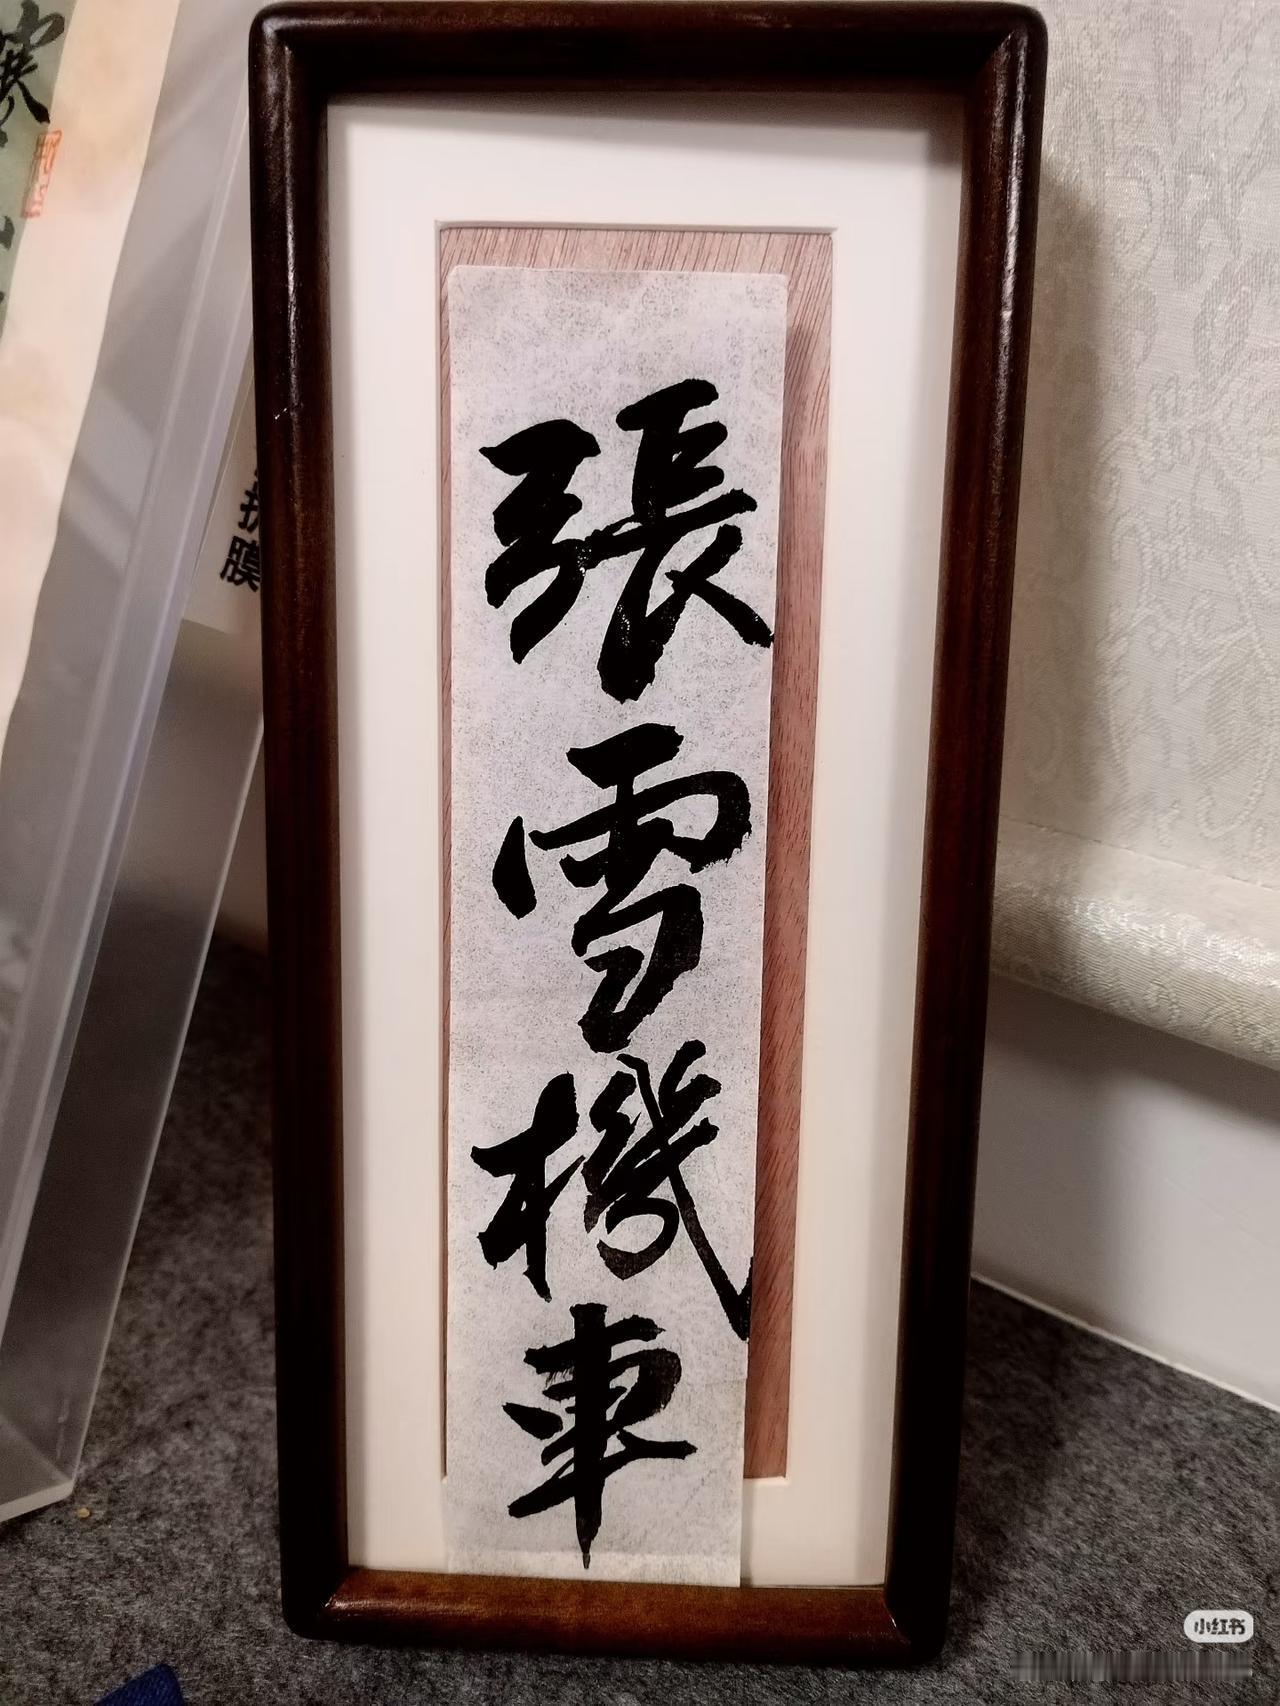 張雪機車
寒
护膜
小红书